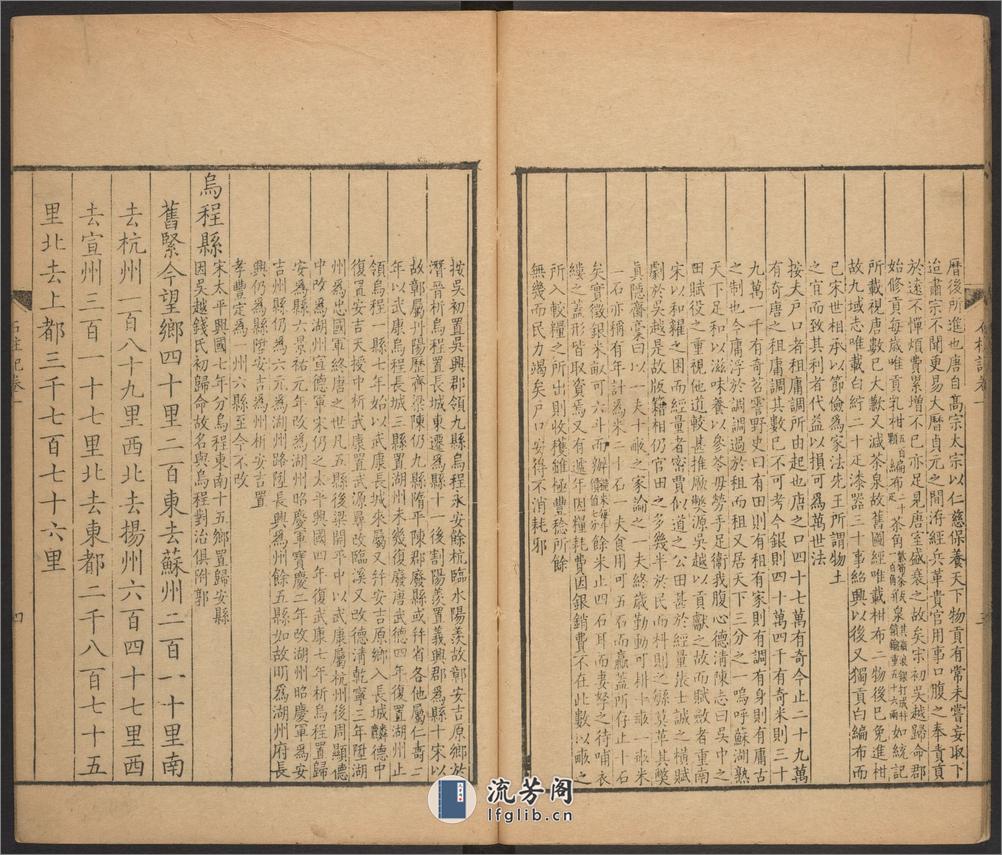 曆後所進也唐自高宗太宗以仁慈保養天下物貢有常未嘗妄取下
迨肅宗不聞更易大曆貞元之間洊經兵革貴官用事口腹之奉貴貢
於遠不憚煩費累增不已亦足見唐室盛衰之故矣宋初吳越歸命郡
始修貢每歲唯貢乳柑
所載視唐數已大歉又減茶泉故舊國經唯載柑布二物後已免進柑
故九域志唯載白紵二十疋漆器三十事紹興以後又獨貢白編布而
已宋世相承以節儉為家法先王所謂物土
之宜而致其利者代益以損可為萬世法
按夫戶口者租庸調所由起也唐之口四十七萬有奇今止二十九萬
有奇唐之租庸調其數已不可考今銀則四十萬四千有奇米則三十
九萬一千有奇苕霅野史曰有田則有租有家則有調有身則有庸古
之制也今庸浮於調調過於租而租又居天下三分之一嗚呼蘇湖熟
天下足和以滋味養以參苓毋勞手足衛我腹心德清陳志曰吳中之
田以賦役之重視他道較甚推厥獘源吳越以貢獻之故而賦斂者重南
宋以和糴之困而經量者密賈似道之公田甚於經量張士誠之橫賦
劇於吳越是故版籍相仍官田之多幾半於民而科則之觚莫革其獘
真隱齋毫曰以一夫十畝之家論之一夫終歲勤動可耕十畝一畝米
一石亦稱有年計為米二十石一夫食用可五石而贏蓋所存止十石
矣實徵銀米畝可六斗而辦餘米止四石耳而妻孥之待哺衣
縷之蓋形皆取資焉又有雖遇有年因糧耗費因銀銷費不在此數以畝之
所入較糧之所出則收穫雖極豐稔所餘
無幾而民力竭矣戶口安得不消耗邪
按吳初置吳興郡領九縣烏程永安餘杭臨水陽羨故鄣安吉原鄉於
潛晉析烏程置長城東遷為縣十一後割陽羨置義興郡為縣十宋以
故鄣屬丹陽歷齊梁陳仍九縣隋平陳郡廢縣或幷省各他屬仁壽二
年以武康烏程長城三縣置湖州未幾復廢唐武德四年復置湖州止
領烏程一縣七年始以武康長城來屬又幷安吉原鄉入長城麟德中
復置安吉天授中析武康置武源尋改臨溪又改德清乾寧三年陞湖
州為忠國軍終唐之世凡五縣後梁開平中以武康屬杭州後周顯德
中改為湖州宣德軍宋仍之太平興國四年復武康七年析烏程置歸
安為縣六景祐元年改湖州昭慶軍寶慶二年改湖州昭慶軍為安
吉州縣仍為六元為湖州路陞長興為州餘五縣如故明為湖州府長
興仍為縣陞安吉為州析安吉置
孝豐定為一州六縣至今不改
宋太平興國七年分烏程東南十五鄉置歸安縣
因吳越錢氏初歸命故名與烏程對治俱附郭
烏程縣
舊緊今望鄉四十里二百東去蘇州二百一十里南
去杭州一百八十九里西北去揚州六百四十七里西
去宣州三百一十七里北去東都二千八百七十五
里北去上都三千七百七十六里
四
流芳阁
lfglib.cn